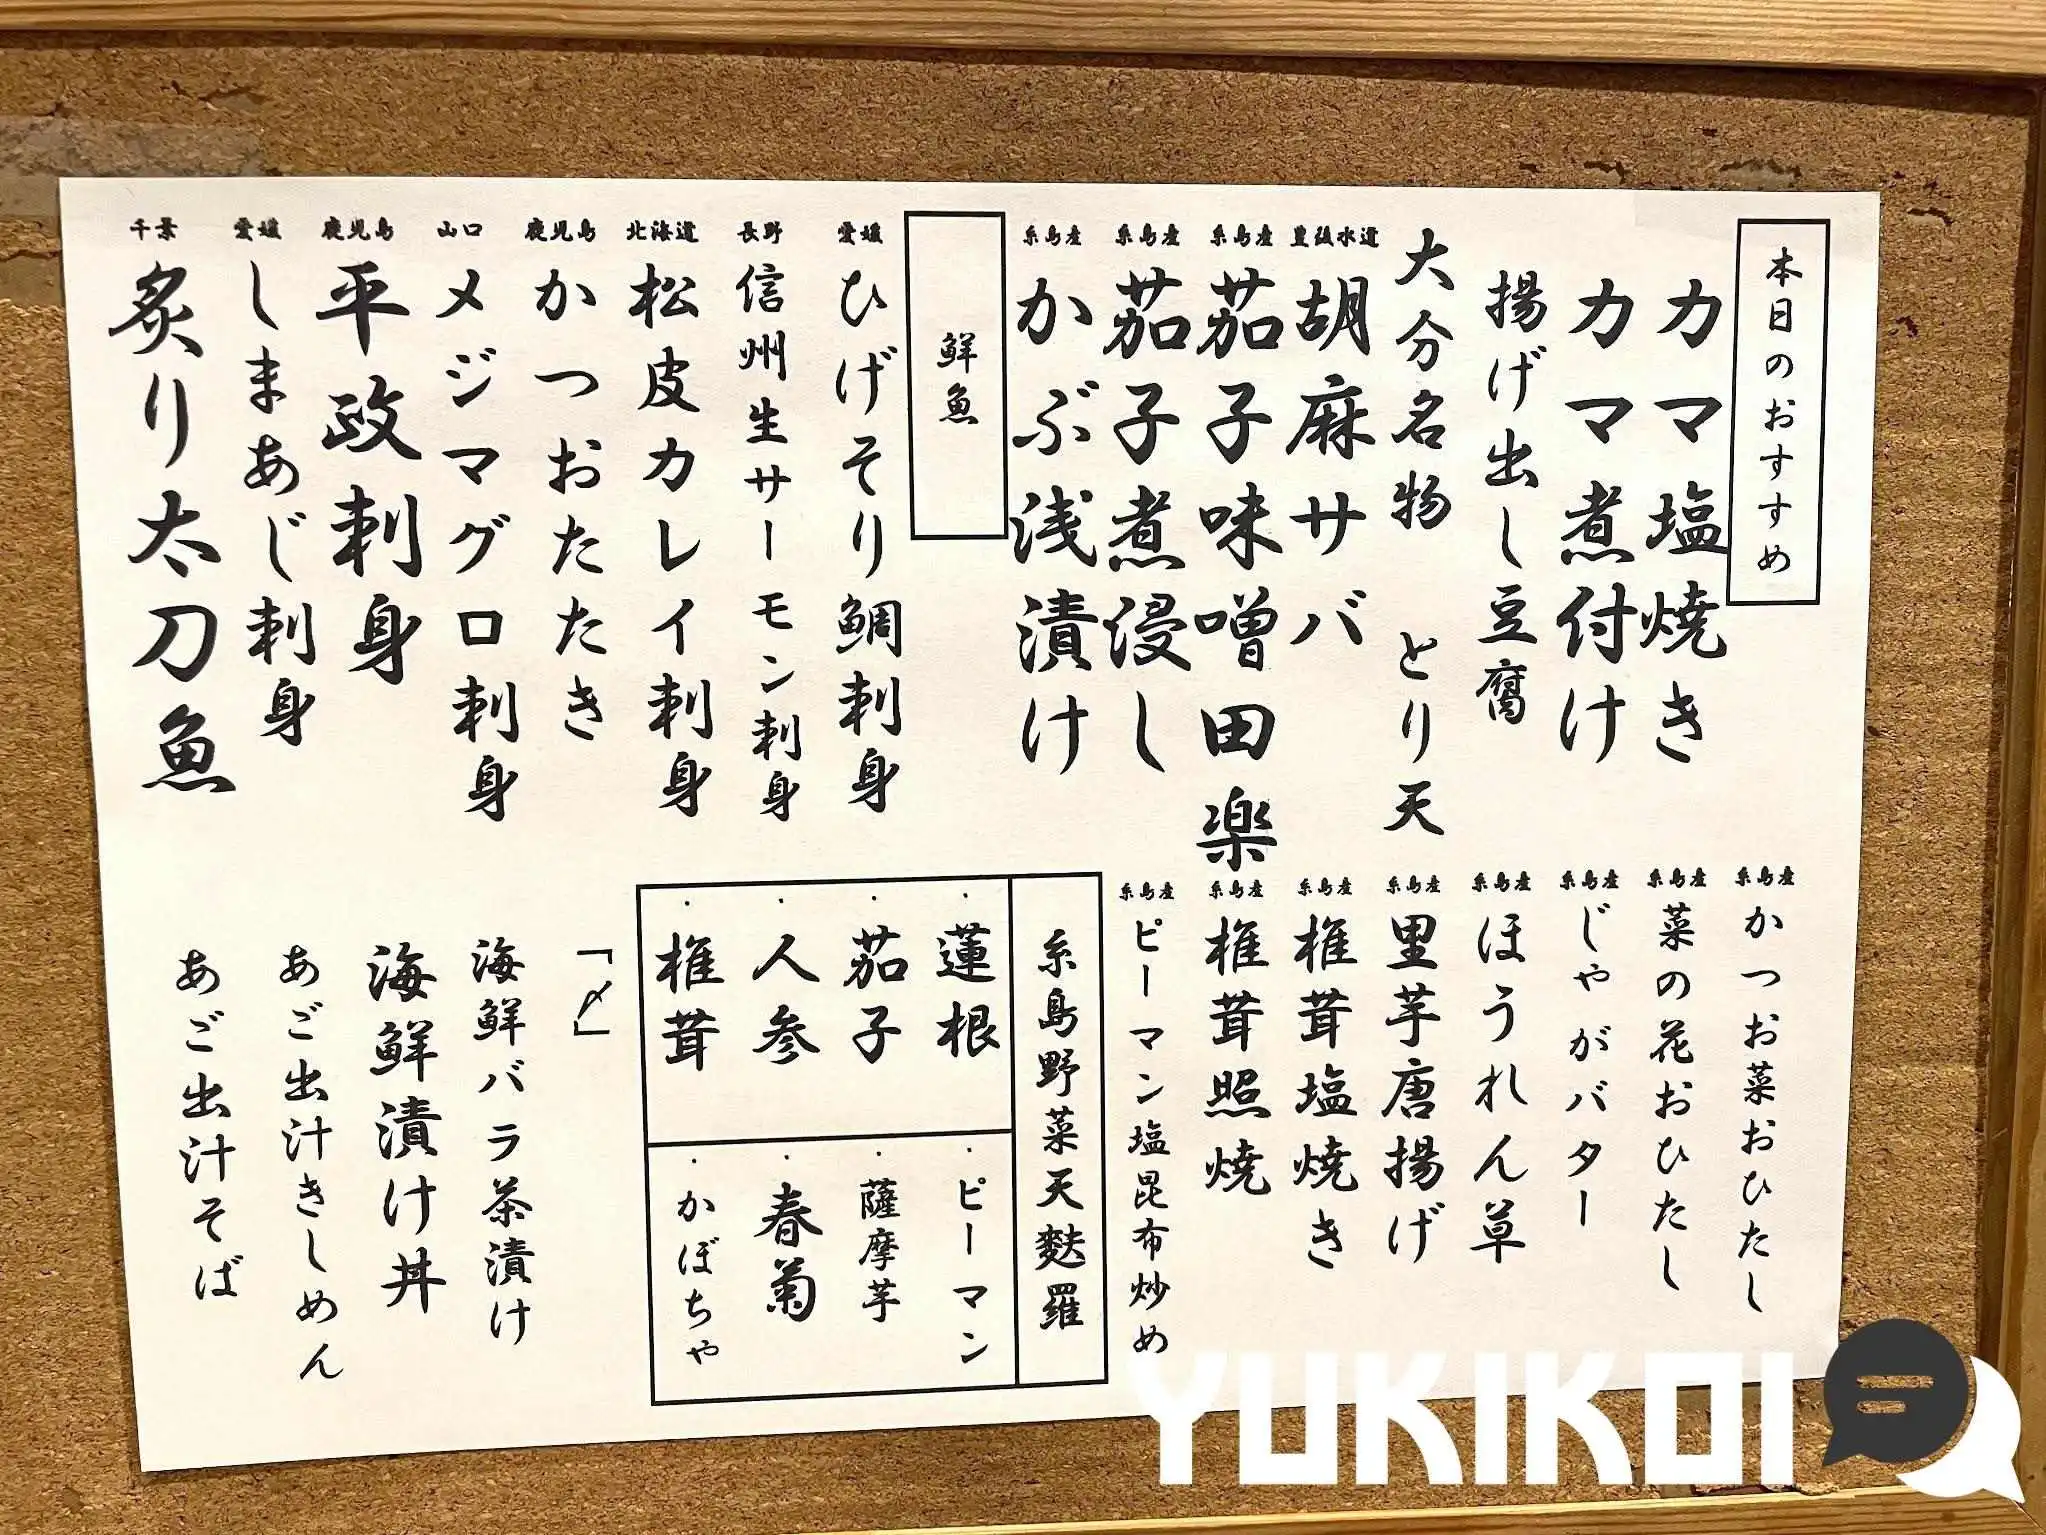 本日のおすすめ
カマ塩焼き
カマ煮付け
揚げ出し豆腐
大分名物 とり天
豊後水道
胡麻サバ
糸島産
茄子味噌田楽
糸島産
茄子煮浸し
糸島産
かぶ浅漬け
鮮魚
愛媛
ひげそり鯛刺身
長野
信州生サーモン刺身
北海道
松皮カレイ刺身
鹿児島
かつおたたき
山口
メジマグロ刺身
鹿児島
平政刺身
愛媛
しまあじ刺身
千葉
炙り太刀魚
糸島産
かつお菜おひたし
糸島産
菜の花おひたし
糸島産
じゃがバター
糸島産
ほうれん草
糸島産
里芋唐揚げ
糸島産
椎茸塩焼き
糸島産
椎茸照焼
糸島産
ピーマン塩昆布炒め
糸島野菜天麩羅
・蓮根
・茄子
・人参
・椎茸
・ピーマン
・薩摩芋
・春菊
・かぼちゃ
「〆」
海鮮バラ茶漬け
海鮮漬け丼
あご出汁きしめん
あご出汁そば
YUKIKOI